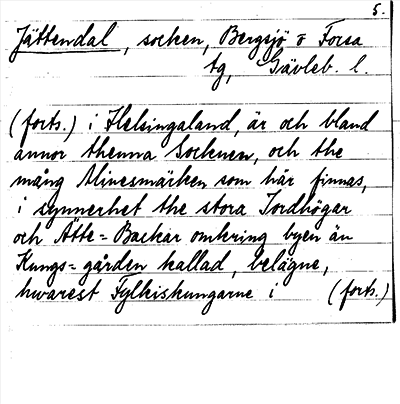 5.
Jättendal, socken, Bergsjö o Forsa
tg, Gävleb. l.
(forts.) i Helsingaland, är och bland
annor thenna Socknen, och the
mång Minesmärken som här finnas,
i synnerhet the stora Jordhögar
och Ätte=Backar omkring byen än
Kungs=gården kallad, belägne,
hwarest Fylkiskungarne i (forts.)